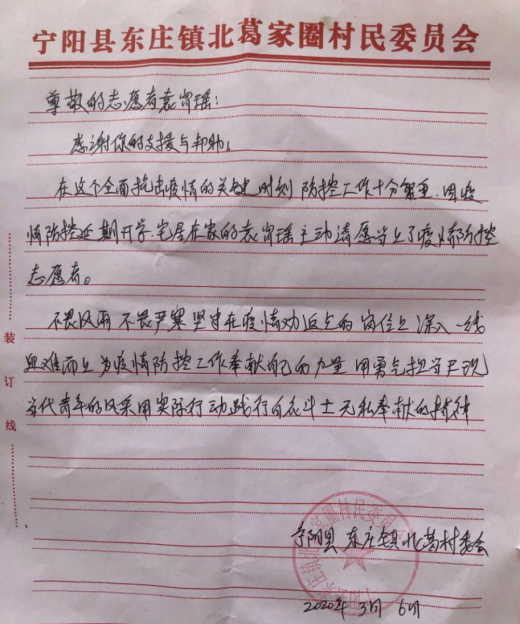 宁阳县东庄镇北葛家圈村民委员会
尊敬的志愿者袁宵瑶:
感谢你的支援与帮助。
在这个全面抗击疫情的关键时刻 防控工作十分繁重.因疫
情防控延期开学 宅居在家的袁宵瑶主动请愿当上了疫情防控
志愿者。
不畏风雨 不畏严寒 坚守在疫情劝返点的岗位上 深入一线
迎难而上 为疫情防控工作奉献自己的力量 用勇气担当
当代青年的风采用实际行动践行 斗士无私奉献的精神
装
订
线
宁阳县东庄镇北葛村委会
2020年3月6日